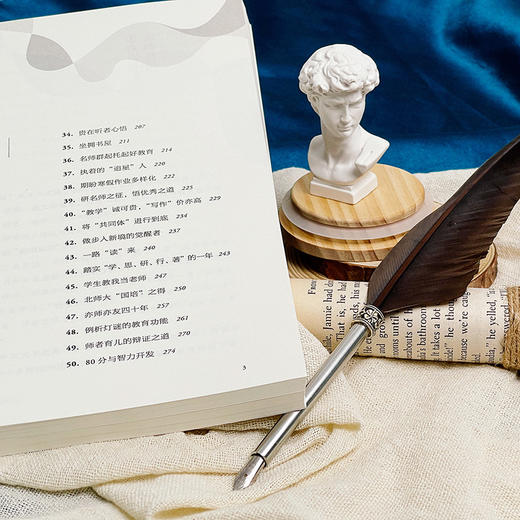 34. 贵在听者心悟 207
35. 坐拥书屋 211
36. 名师群起托起好教育 214
37. 执着的“追星”人 220
38. 期盼寒假作业多样化 221
39. 研名师之征，悟优秀之道 225
40. “教学”诚可贵，“写作”价亦高 229
41. 将“共同体”进行到底 234
42. 做步入新境的觉醒者 237
43. 一路“读”来 240
44. 踏实“学、思、研、行、著”的一年 249
45. 学生教我当老师 250
46. 北师大“国培”之得 250
47. 亦师亦友四十年 257
48. 例析灯谜的教育功能 261
49. 师者育儿的辩证之道 270
50. 80 分与智力开发 274
3
Jamie had
, he had
bathroom
takes a lot of
because we're can
he yelled, "it